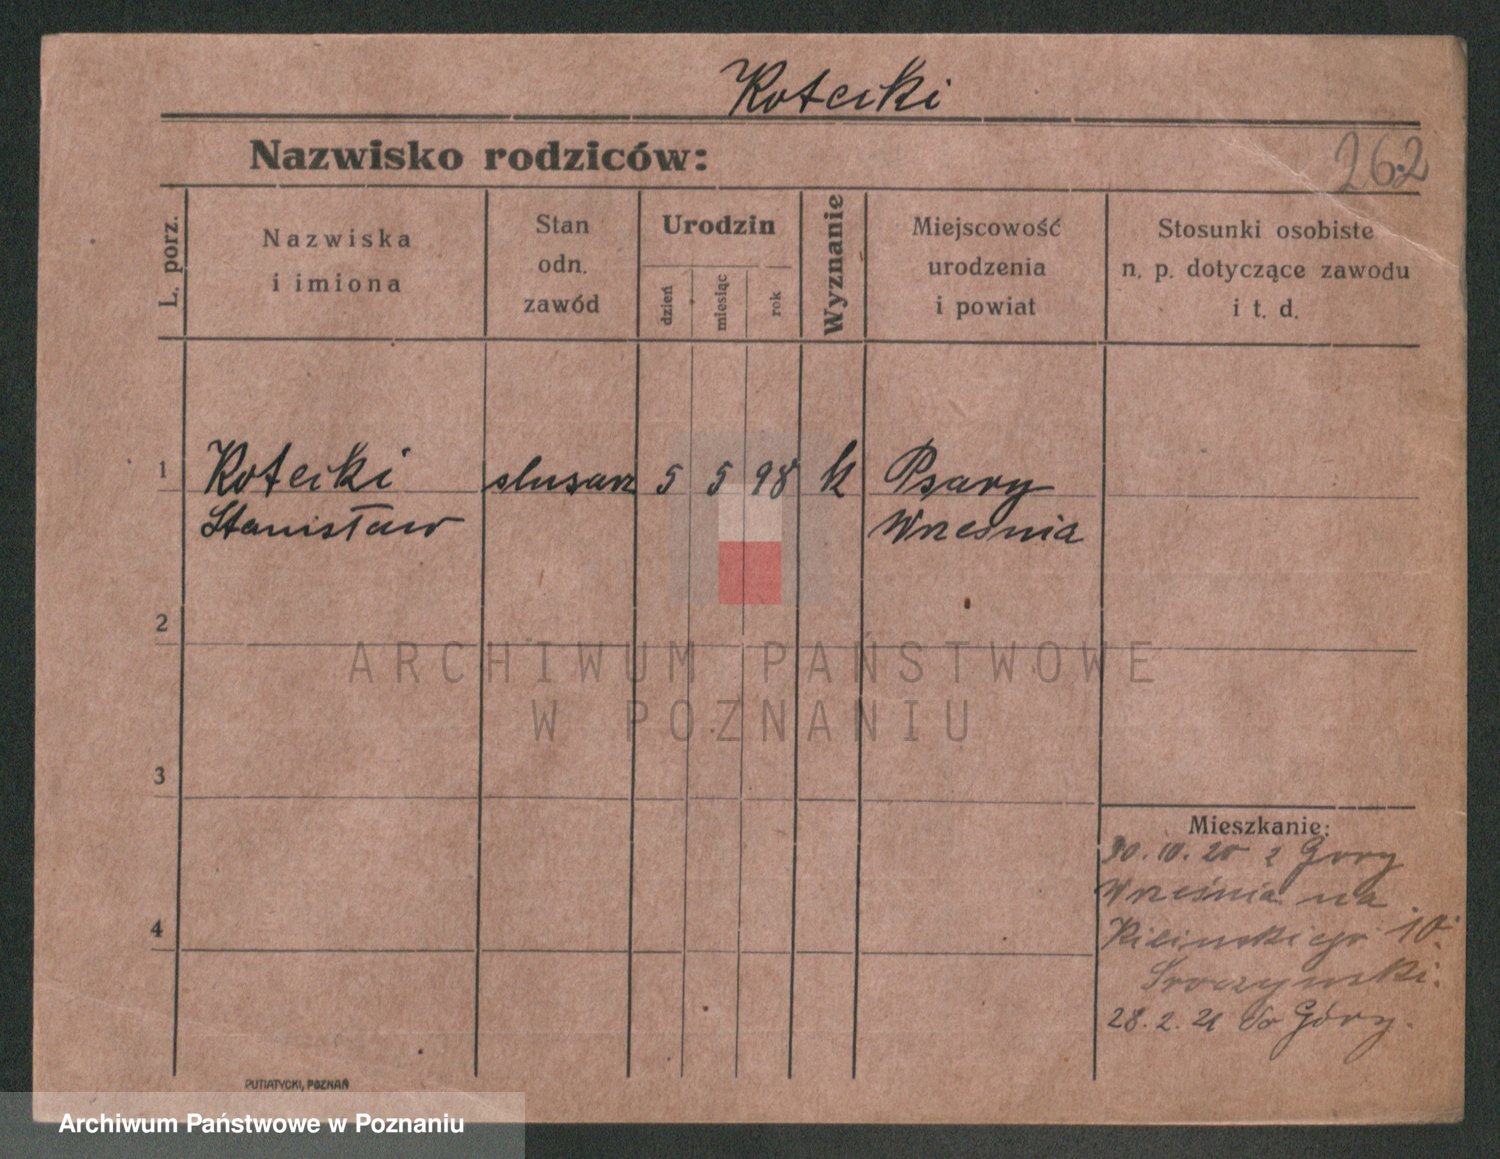 Kotecki
Nazwisko rodziców:
262
L. porz.
Nazwiska
i imiona
Stan
odn.
zawód
Urodzin
dzień
miesiąc
rok
Wyznanie
Miejscowość
urodzenia
i powiat
Stosunki osobiste
n. p. dotyczące zawodu
i t. d.
1 Kotecki slusarz 5 5 98 k Psary
Stanisław Wrzesnia
2
ARCHIWUM PAŃSTWOWE
W POZNANIU
3
Mieszkanie:
30.10.20 z Gory
Września na
4
Kilinskiego 10.
Sroczynski.
28.2.21 do Góry.
PUTIATYCKI, POZNAŃ
Archiwum Państwowe w Poznaniu